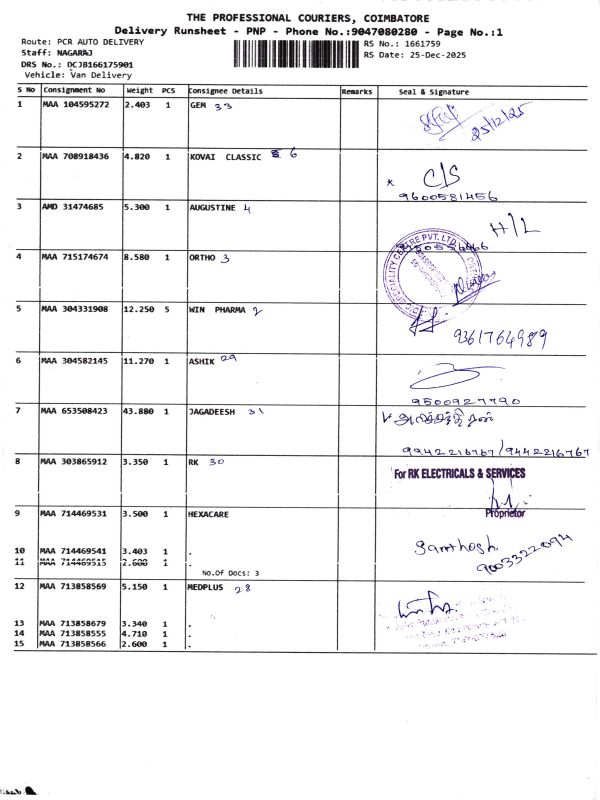 THE PROFESSIONAL COURIERS, COIMBATORE
Delivery Runsheet - PNP - Phone No.:9047080280 - Page No.:1
Route: PCR AUTO DELIVERY
Staff: NAGARAJ
DRS No.: DCJB166175901
Vehicle: Van Delivery
RS No.: 1661759
RS Date: 25-Dec-2025
S No Consignment No Weight PCS Consignee Details Remarks Seal & Signature
1 MAA 104595272 2.403 1 GEM 33
25/12/25
2 MAA 708918436 4.820 1 KOVAI CLASSIC 6
C/S
9600581456
3 AMD 31474685 5.300 1 AUGUSTINE 4
H/L
4 MAA 715174674 8.580 1 ORTHO 3
SPECIALITY CENTRE PVT. LTD.
5 MAA 304331908 12.250 5 WIN PHARMA 2
9361764989
6 MAA 304582145 11.270 1 ASHIK 29
9500927790
7 MAA 653508423 43.880 1 JAGADEESH 31
9942216767/9442216767
8 MAA 303865912 3.350 1 RK 30
For RK ELECTRICALS & SERVICES
Proprietor
9 MAA 714469531 3.500 1 HEXACARE
Santhosh
9003322094
10 MAA 714469541 3.403 1 .
11 MAA 714469515 2.600 1 .
No.Of Docs: 3
12 MAA 713858569 5.150 1 MEDPLUS 28
13 MAA 713858679 3.340 1 .
14 MAA 713858555 4.710 1 .
15 MAA 713858566 2.600 1 .